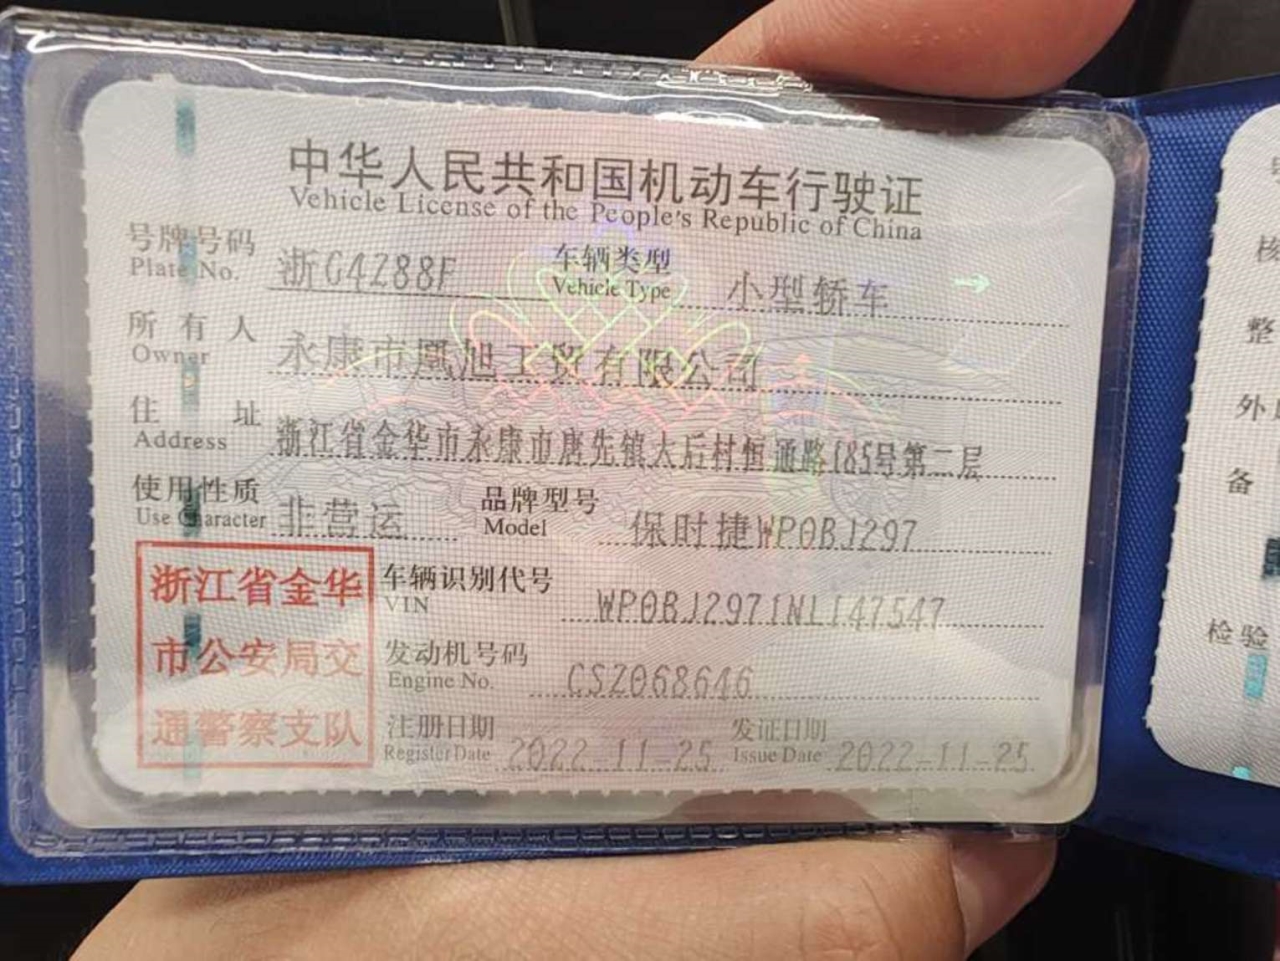 中华人民共和国机动车行驶证
Vehicle License of the People's Republic of China
号牌号码 浙G4Z88F 车辆类型 小型轿车
Plate No. Vehicle Type
所有人 永康市凰旭工贸有限公司
Owner
住址 浙江省金华市永康市唐先镇大后村恒通路185号第二层
Address
使用性质 非营运 品牌型号 保时捷WP0BJ297
Use Character Model
浙江省金华
市公安局交
通警察支队
车辆识别代号
VIN WP0BJ2971NL147547
发动机号码
Engine No. CSZ068646
注册日期 发证日期
Register Date 2022-11-25 Issue Date 2022-11-25
核
整
外
备
检验